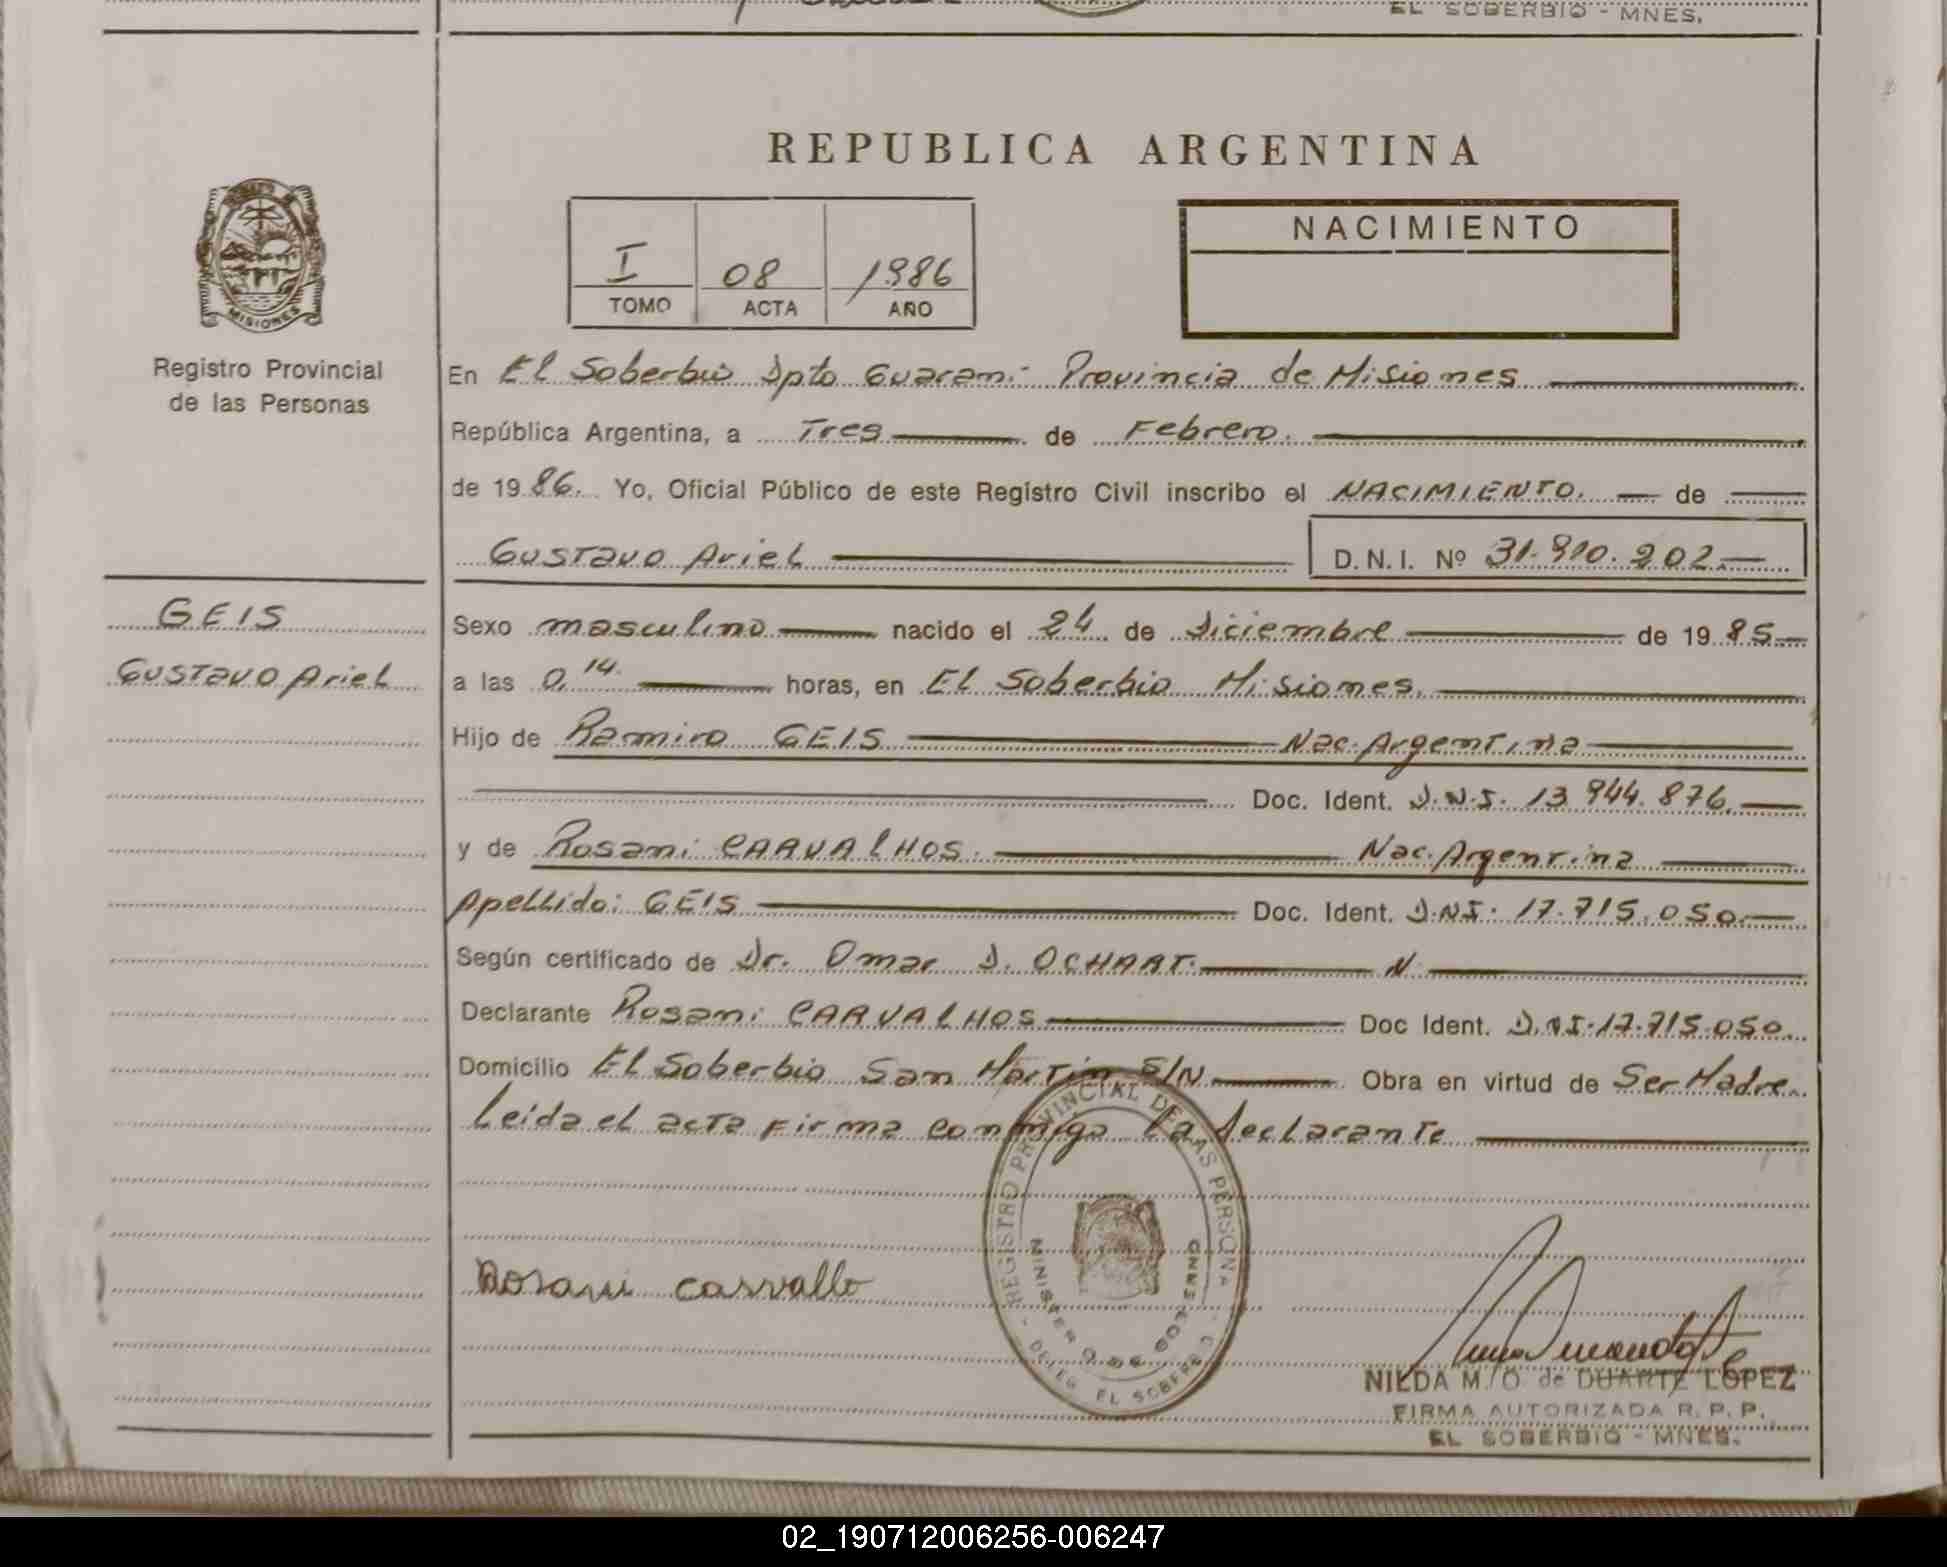 EL SOBERBIO - MNES.
REPUBLICA ARGENTINA
NACIMIENTO
I 08 1986
TOMO ACTA AÑO
MISIONES
Registro Provincial
de las Personas
En El Soberbio Dpto Guarani Provincia de Misiones
República Argentina, a Tres de Febrero.
de 1986. Yo, Oficial Público de este Registro Civil inscribo el NACIMIENTO. de
Gustavo Ariel D.N.I. Nº 31.910.202.
GEIS
Gustavo Ariel
Sexo masculino nacido el 24 de Diciembre de 1985
a las 0,14. horas, en El Soberbio Misiones.
Hijo de Ramiro GEIS Nac. Argentina
Doc. Ident. D.N.I. 13.944.876.
y de Rosani CARVALHOS. Nac. Argentina
Apellido: GEIS Doc. Ident. D.N.I. 17.715.050.
Según certificado de Dr. Omar D. OCHART. N
Declarante Rosani CARVALHOS Doc Ident. D.N.I. 17.715.050.
Domicilio El Soberbio San Martin S/N Obra en virtud de Ser Madre.
Leida el acta firma conmigo la declarante
REGISTRO PROVINCIAL DE LAS PERSONA
DELEG. EL SOBERBIO
Rosani carvallo
NILDA M. O. de DUARTE LOPEZ
FIRMA AUTORIZADA R. P. P.
EL SOBERBIO - MNES.
02_190712006256-006247